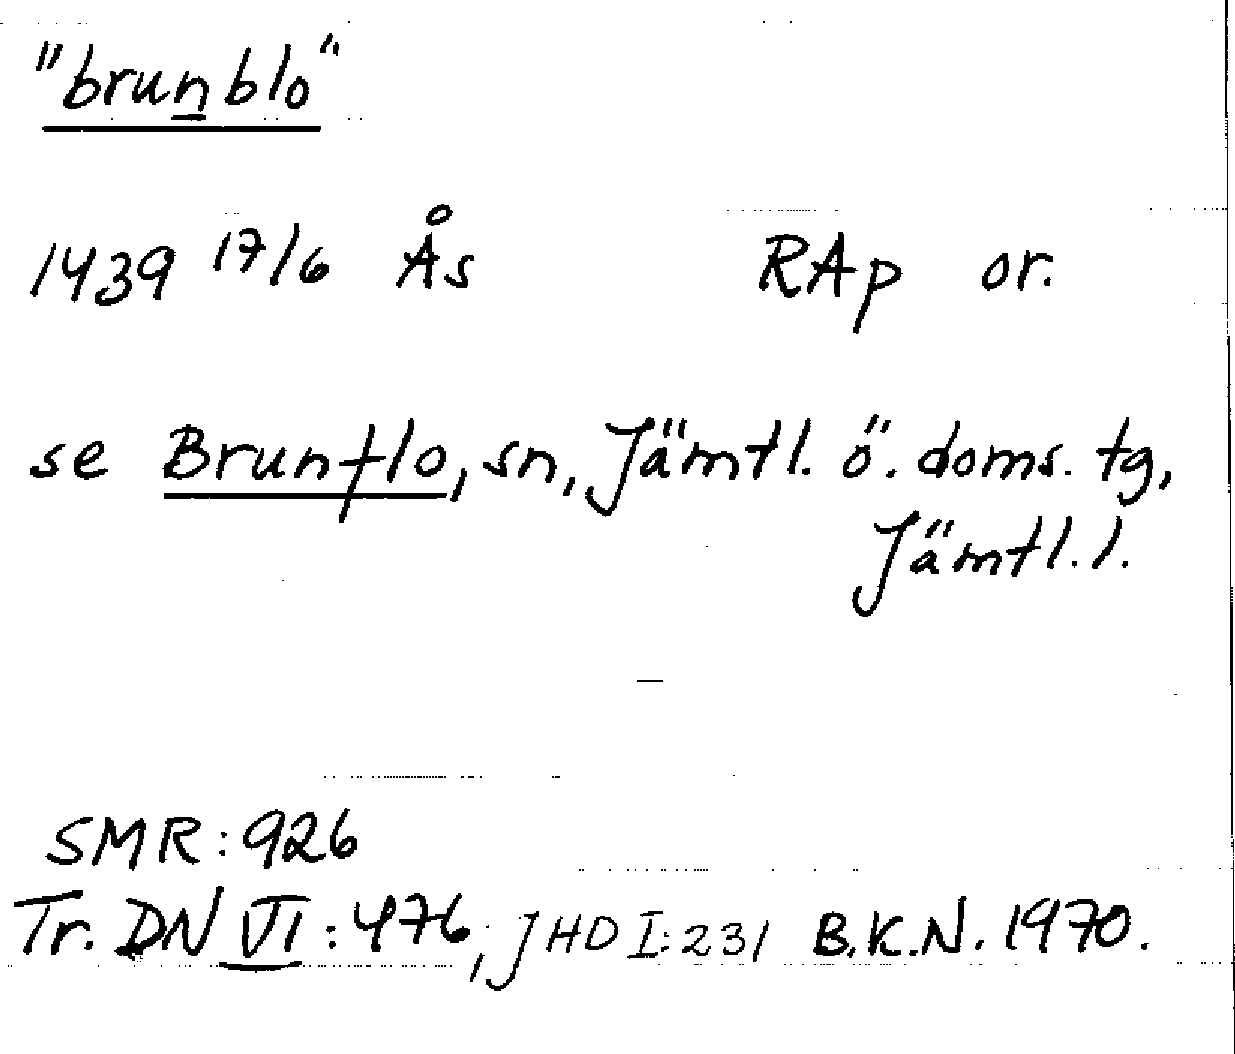 "brunblo"
1439 17/6 Ås RAp or.
se Brunflo, sn, Jämtl. ö. doms. tg,
Jämtl. l.
SMR: 926
Tr. DN VI: 476, JHD I: 231 B.K.N. 1970.